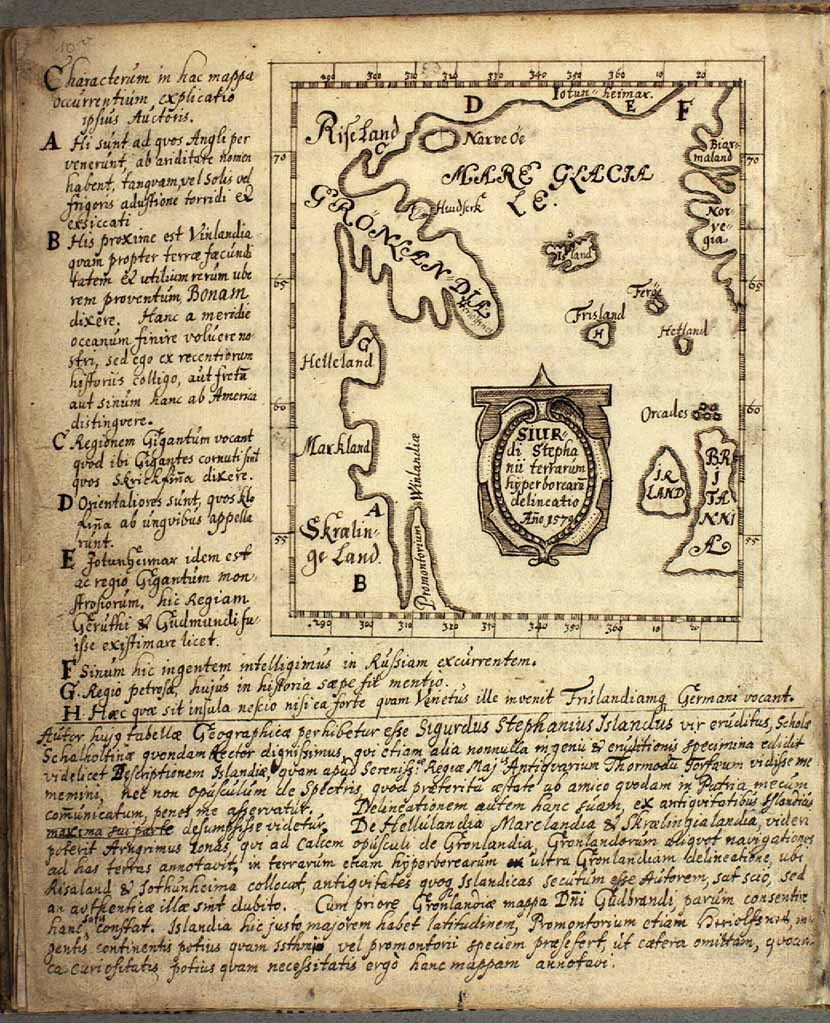 Characterum in hac mappa
occurrentium explicatio
ipsius Auctoris.
A Hi sunt ad qvos Angli per
venerunt, ab ariditate nomen
habent, tanqvam vel Solis vel
frigoris adustione torridi et
exsiccati
B His proxime est Vinlandia
qvam propter terræ fæcundi
tatem et utilium rerum ube
rem proventum, Bonam
dixere. Hanc a meridie
oceanum finire voluere no
stri, sed ego ex recentiorum
historiis colligo, aut fretum
aut sinum hanc ab America
distingvere.
C Regionem Gigantum vocant
qvod ibi Gigantes cornuti sint
qvos Skrickfinna dixere.
D Orientaliores sunt, qvos klo
finna ab ungvibus appella
runt.
E Jotunheimar idem est
ac regio Gigantum mon-
strosorum, hic Regiam
Geruthi & Gudmundi fu-
isse existimare licet.
F Sinum hic ingentem intelligimus in Russiam excurrentem.
G. Regio petrosa, hujus in historia sæpe fit mentio.
H Hæc qvæ sit insula nescio nisi ea forte qvam Venetus ille invenit Frislandiamq Germani vocant.
Autor hujq tabellæ Geographicæ perhibetur esse Sigurdus Stephanius Islandus vir eruditus, Scholæ
Schalholtinæ qvondam Rector dignissimus, qvi etiam alia nonnulla ingenii & eruditionis specimina edidit
videlicet Descriptionem Islandiæ, qvam apud Sereniss: Regiæ Maj: Antiqvarium Thormodu Torfæum vidisse me
memini, nec non opusculum de Spectris, qvod præterita ætate ab amico qvodam in Patria mecum
comunicatum, penes me asservatur. Delineationem autem hanc suam, ex antiqvitatibus Islandicis
maxima sui parte desumsisse videtur. De Hellulandia Marclandia & Skrælingialandia, videri
poterit Arngrimus Jonas, qvi ad calcem opusculi de Gronlandia, Gronlandorum aliqvot navigationes
ad has terras annotavit, in terrarum etiam hyperborearum ultra Gronlandiam delineatione, ubi
Risaland & Jothunheima collocat, antiqvitates qvoq Islandicas secutum esse Autorem, sat scio, sed
an authenticæ illæ sint dubito. Cum priore Gronlandiæ mappa Dni Gudbrandi parum consentire
hanc, satis constat. Islandia hic justo majorem habet latitudinem, Promontorium etiam Heriolfsnes, in-
gentis continentis potius qvam Isthmi vel promontorii speciem præsefert, ut cætera omittam,
ca curiositatis potius qvam necessitatis ergo hanc mappam annotavi.
290 300 310 320 330 340 350 360 10 20
D Iotunheimar. E F
Riseland
C
Narve Oe
Biarmaland
70 70
MARE GLACIA
LE.
GRONLANDIÆ
Huidserk
Norvegia
Island
65 65
Feröe
Frisland
H
Hetland
Helleland
G
60 60
Orcades
SIUR-
di Stepha
nii terrarum
hyperborearu
delineatio
Año 1570
Markland
IR
LAND
BRITANNIA
A
Skrælin-
ge Land.
B
Promontorium Winlandiæ
55 55
290 300 310 320 330 340 350 360 10 20